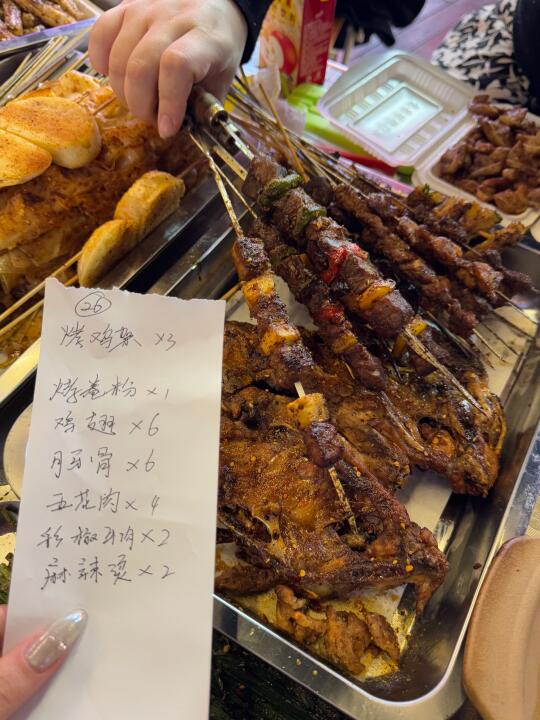 26
烤鸡架 ×3
烤卷粉 ×1
鸡翅 ×6
月牙骨 ×6
五花肉 ×4
彩椒牛肉 ×2
麻辣烫 ×2